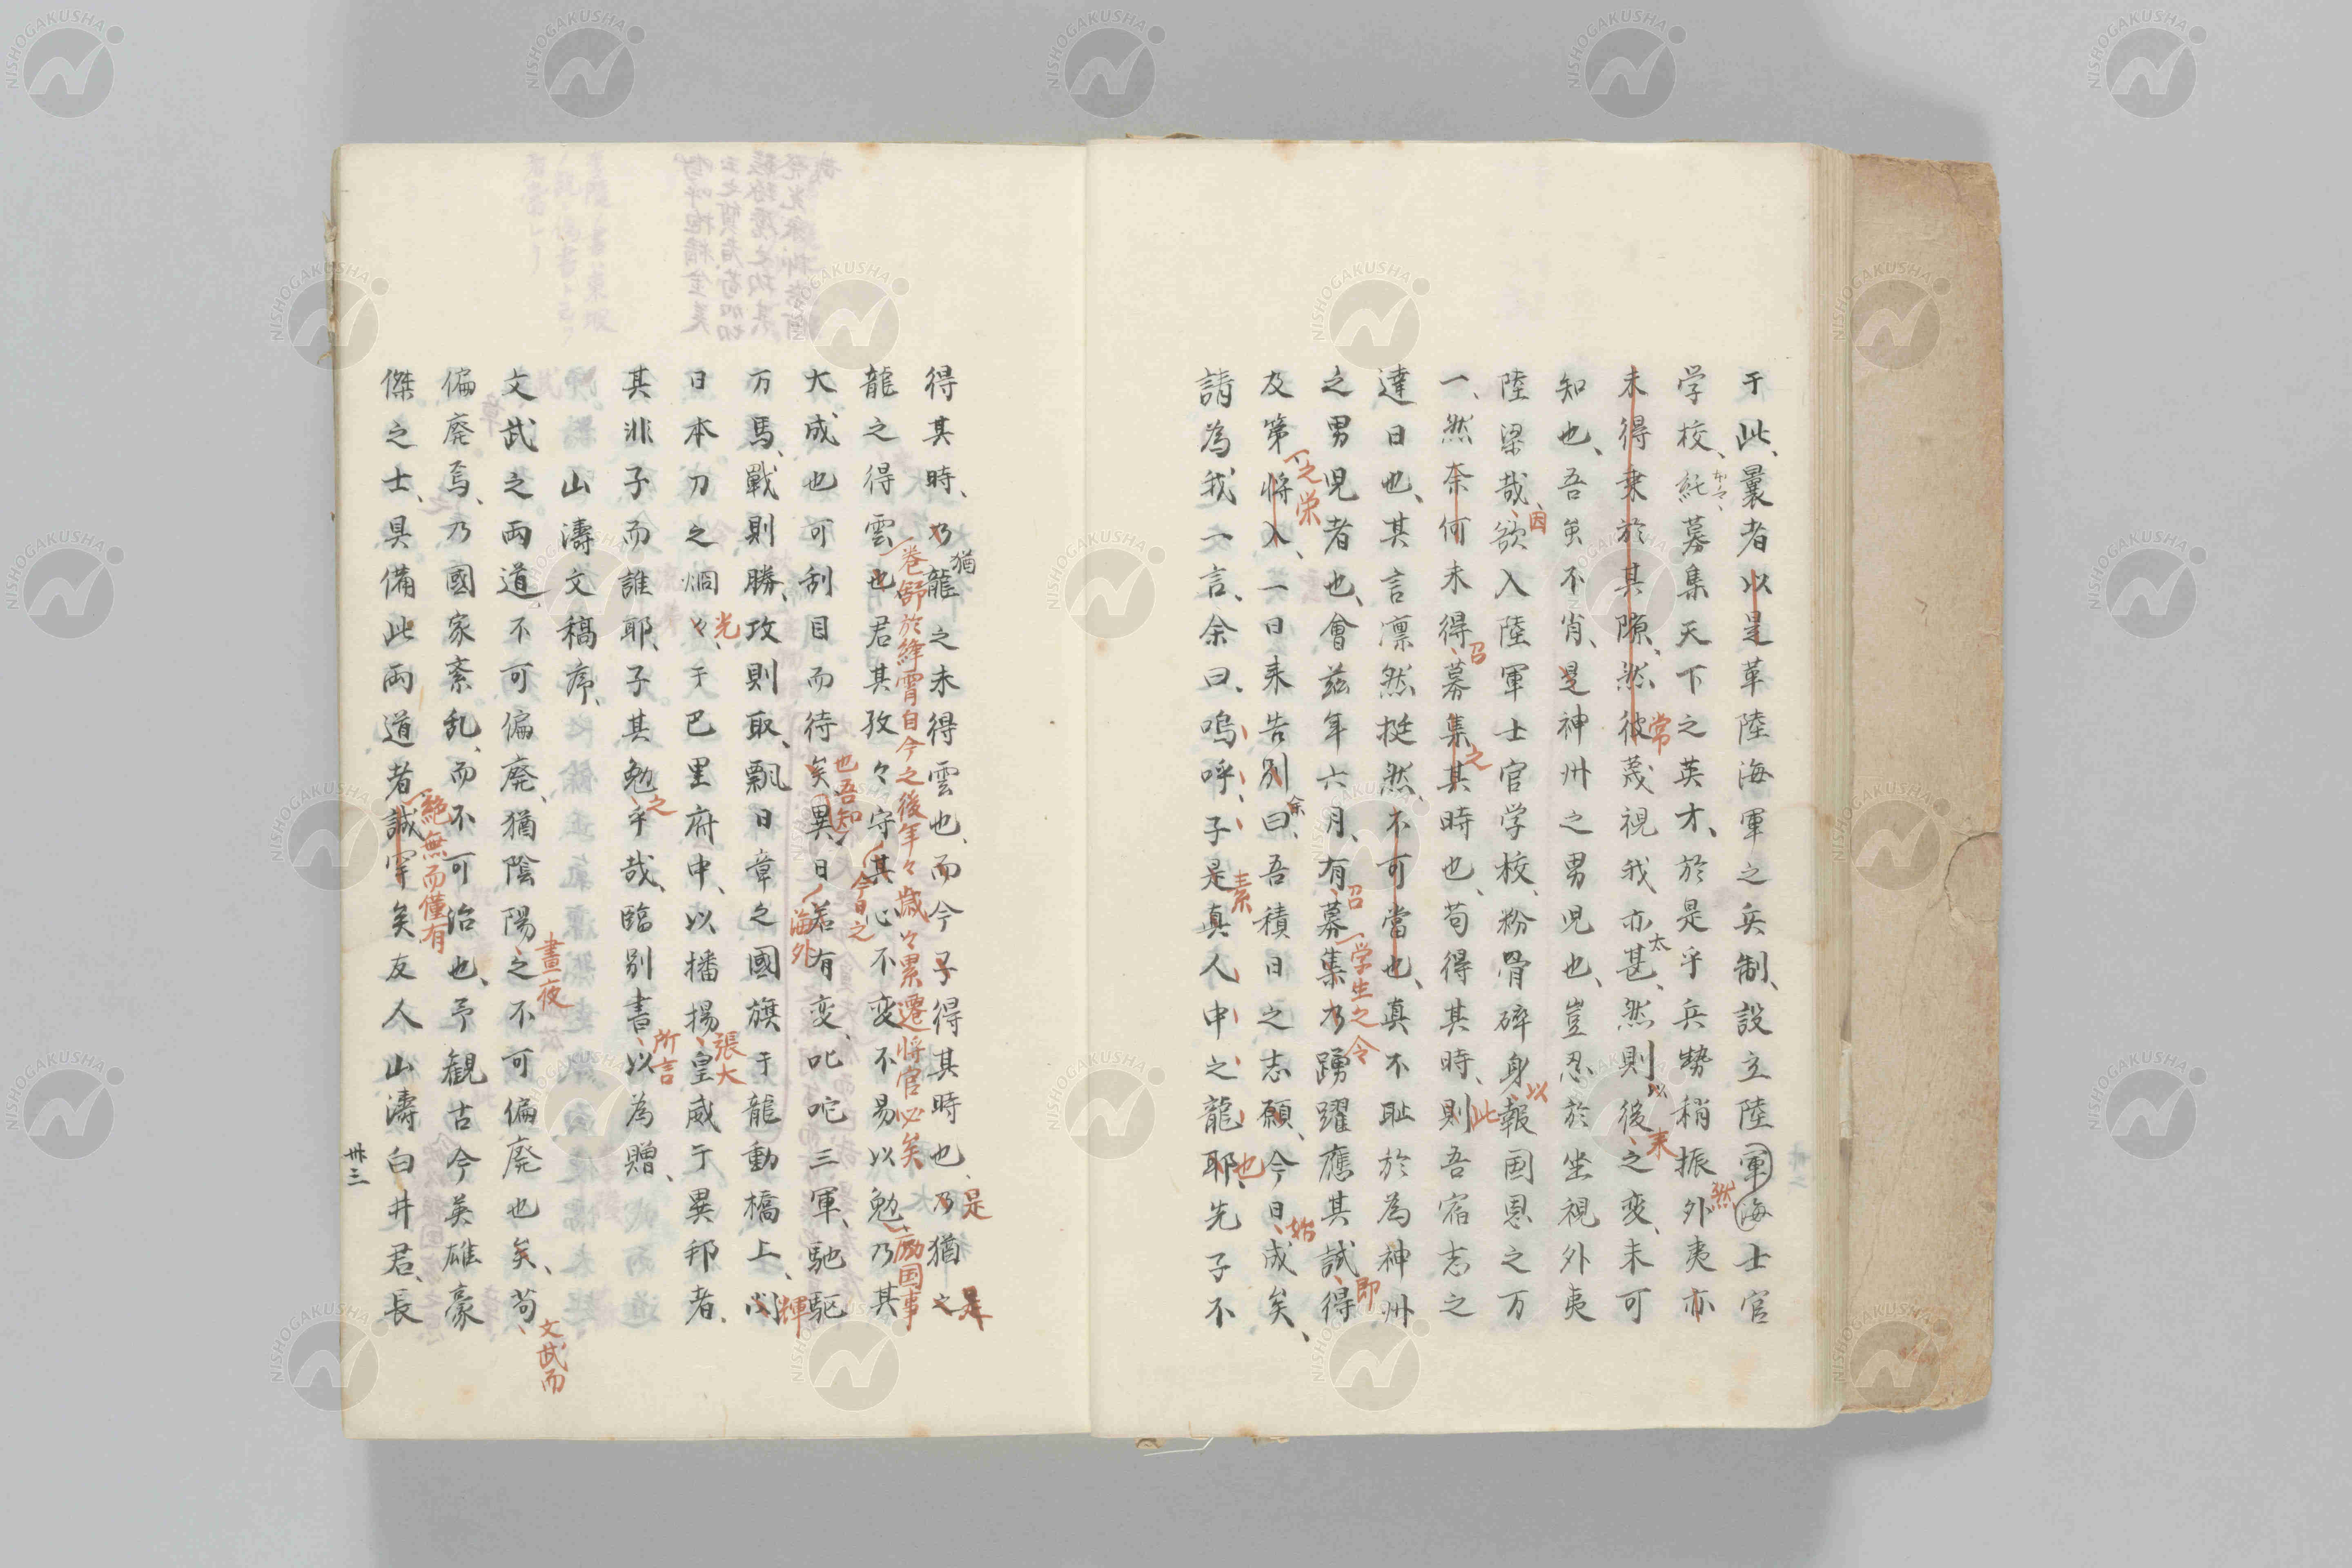 于此、曩者以是革陸海軍之兵制、設立陸軍海士官
学校、純募集天下之英才、於是乎兵勢稍振外夷亦
然
未得乗於其隙、然彼蔑視我亦甚、然則後之変、未可
常
太
以
来
知也、吾虽不肖、是神州之男児也、豈忍於坐視外夷
陸梁哉、欲入陸軍士官学校、粉骨碎身報国恩之万
因
以
一、然奈何未得募集其時也、苟得其時、則吾宿志之
召
之
此
達日也、其言凛然挺然、不可當也、真不耻於為神州
之男児者也、會茲年六月、有募集乃踴躍應其試、得
召
学生之令
即
及第将入、一日来告別曰、吾積日之志願、今日成矣、
之栄
余
始
請為我一言、余曰、嗚呼、子是真人中之龍耶、先子不
素
也
得其時、乃龍之未得雲也、而今子得其時也、乃猶之
猶
是
是
龍之得雲也君其孜々守其心不変不易以勉乃其
巻舒於絳霄自今之後年々歳々累遷将官必矣
励国事
大成也可刮目而待矣異日若有変、叱咤三軍、馳駆
也吾知
今日之
海外
万馬、戰則勝、攻則取、飄日章之國旗于龍動橋上、閃
輝
日本刀之烱々、于巴里府中、以播揚皇威于異邦者、
光
張大
其非子而誰耶、子其勉乎哉、臨別書以為贈、
之
所言
山濤文稿序、
文武之両道、不可偏廃、猶陰陽之不可偏廃也矣、苟
晝夜
文武而
偏廃焉、乃國家紊乱、而不可治也、予観古今英雄豪
傑之士、具備此両道者誠罕矣友人山濤白井君、長
絶無而僅有
卅三
NISHOGAKUSHA